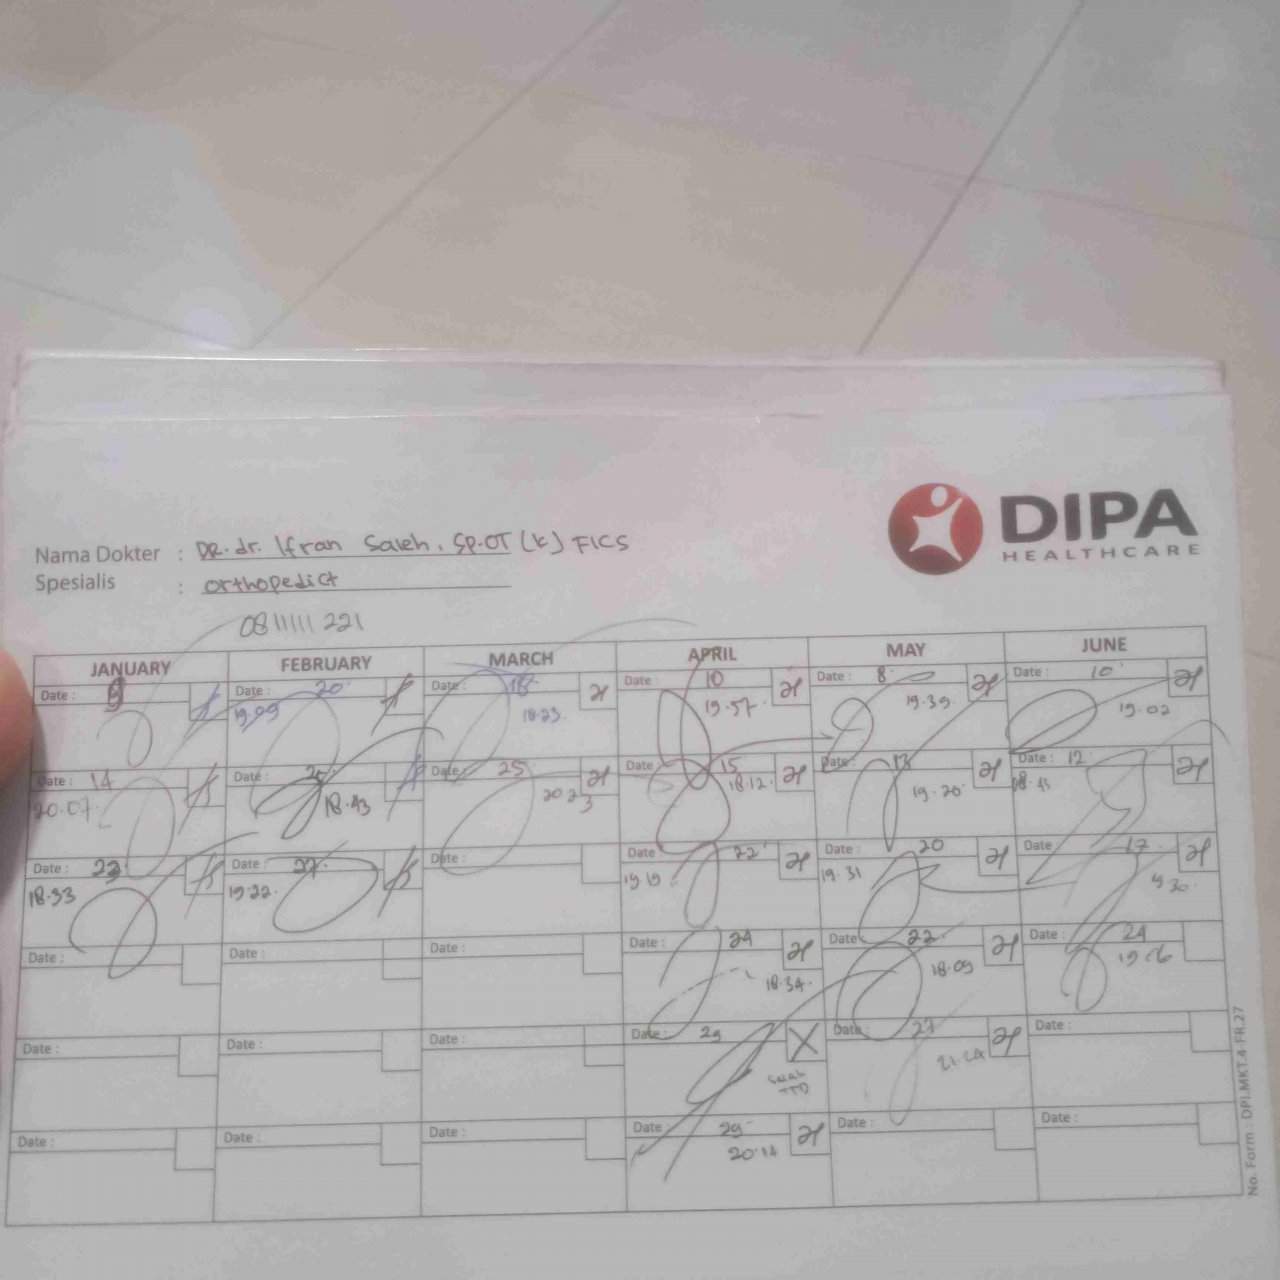 DIPA
HEALTHCARE
Nama Dokter : DR. dr. Ifran Saleh. SP.OT (K) FICS
Spesialis : Orthopedict
08111111 221
JANUARY FEBRUARY MARCH APRIL MAY JUNE
Date : 9 Date : 20 Date : 18 Date : 10 Date : 8 Date : 10
19.09 18.23 19.57 19.39 19.02
Date : 14 Date : 25 Date : 25 Date : 15 Date : 13 Date : 12
20.07 18.43 20.23 18.12 19.20
Date : 23 Date : 27 Date : Date : 22 Date : 20 Date : 17
18.33 19.22 19.19 19.31
Date : Date : Date : Date : 24 Date : 22 Date : 24
18.34 18.09 19.06
Date : Date : Date : Date : 29 Date : 27 Date :
21.24
Date : Date : Date : Date : 29 Date : Date :
20.14
No. Form : DPI.MKT.4-FR.27